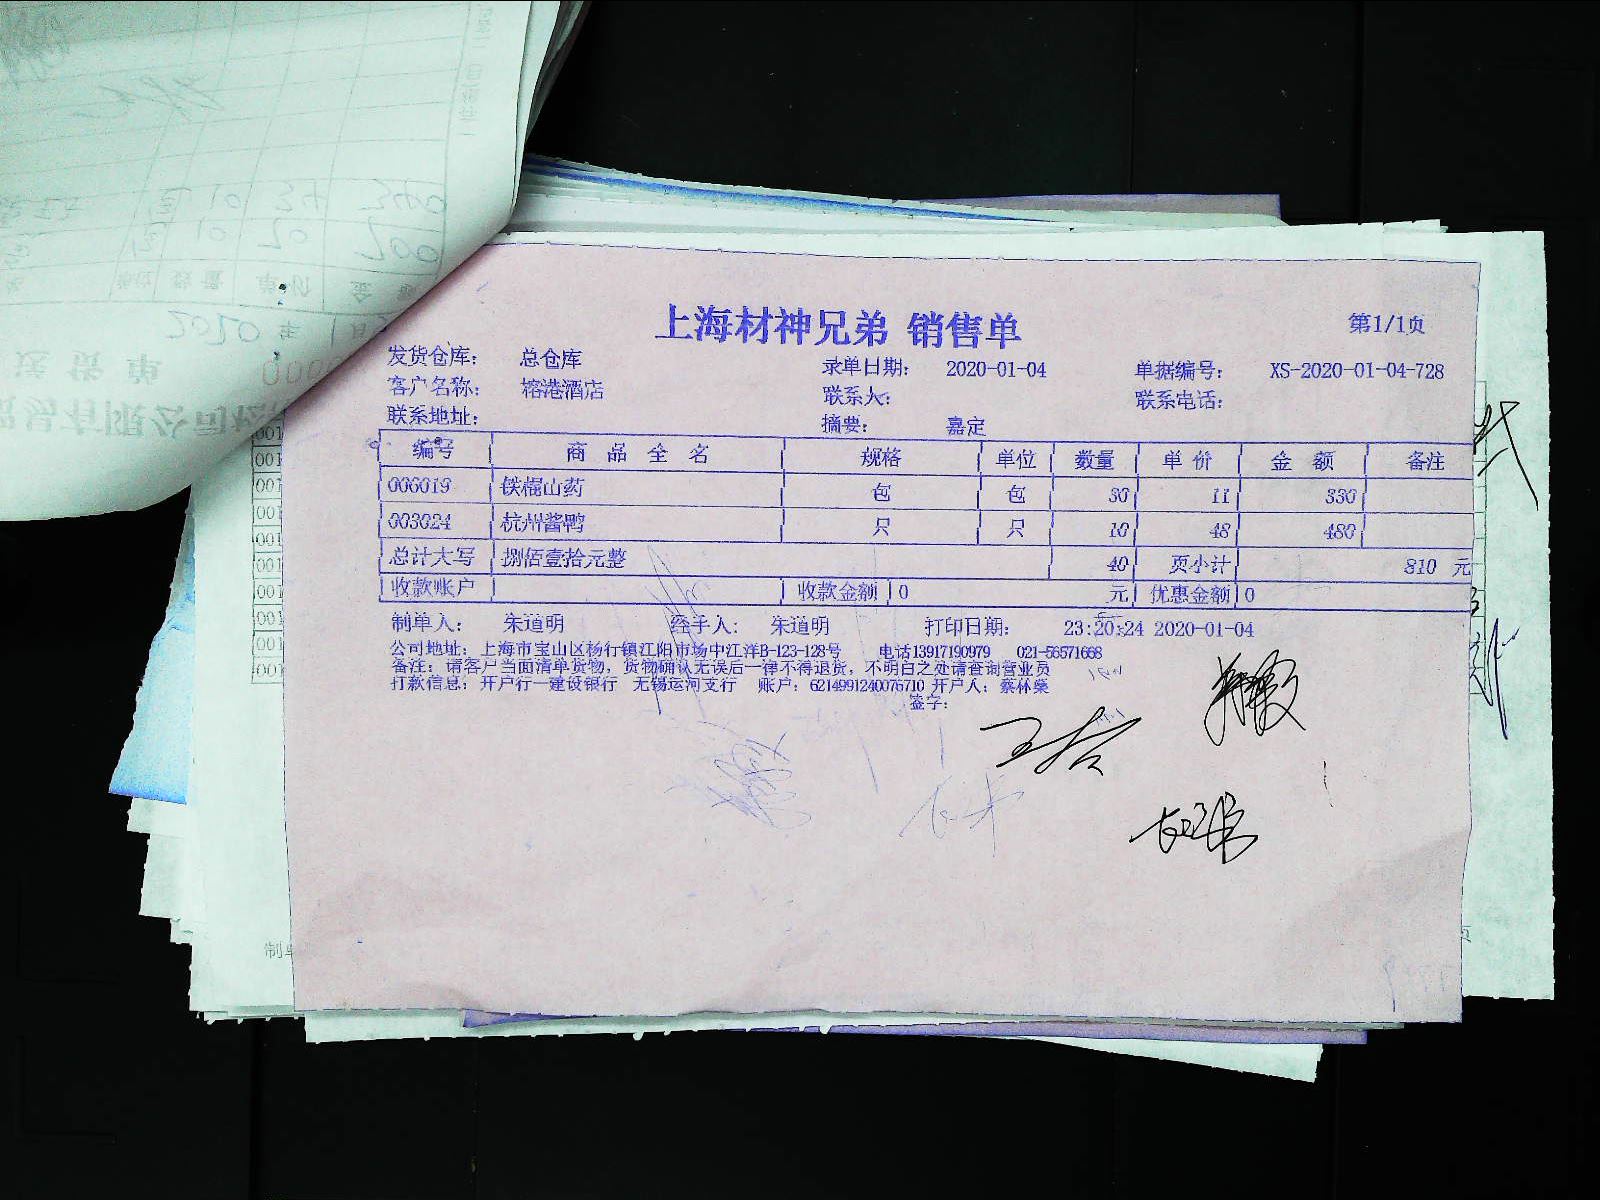 上海材神兄弟 销售单 第1/1页
发货仓库： 总仓库 录单日期： 2020-01-04 单据编号： XS-2020-01-04-728
客户名称： 榕港酒店 联系人： 联系电话：
联系地址： 摘要： 嘉定
编号 商品全名 规格 单位 数量 单价 金额 备注
006019 铁棍山药 包 包 30 11 330
003024 杭州酱鸭 只 只 10 48 480
总计大写 捌佰壹拾元整 40 页小计 810 元
收款账户 收款金额 0 元 优惠金额 0
制单人： 朱道明 经手人： 朱道明 打印日期： 23:20:24 2020-01-04
公司地址：上海市宝山区杨行镇江阳市场中江洋B-123-128号 电话13917190979 021-56571668
备注：请客户当面清单货物，货物确认无误后一律不得退货，不明白之处请查询营业员
打款信息：开户行一建设银行 无锡运河支行 账户：6214991240076710 开户人：蔡林燊
签字：